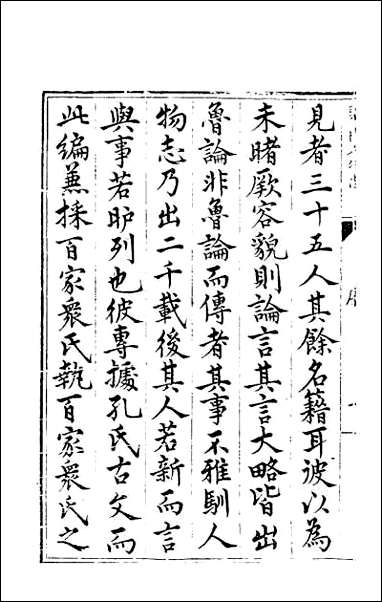 見者三十五人其餘名籍耳彼以為
未睹厥容貌則論言其言大略皆出
魯論非魯論而傳者其事不雅馴人
物志乃出二千載後其人若新而言
與事若眎列也彼專據孔氏古文而
此編蒹採百家衆氏執百家衆氏之
序